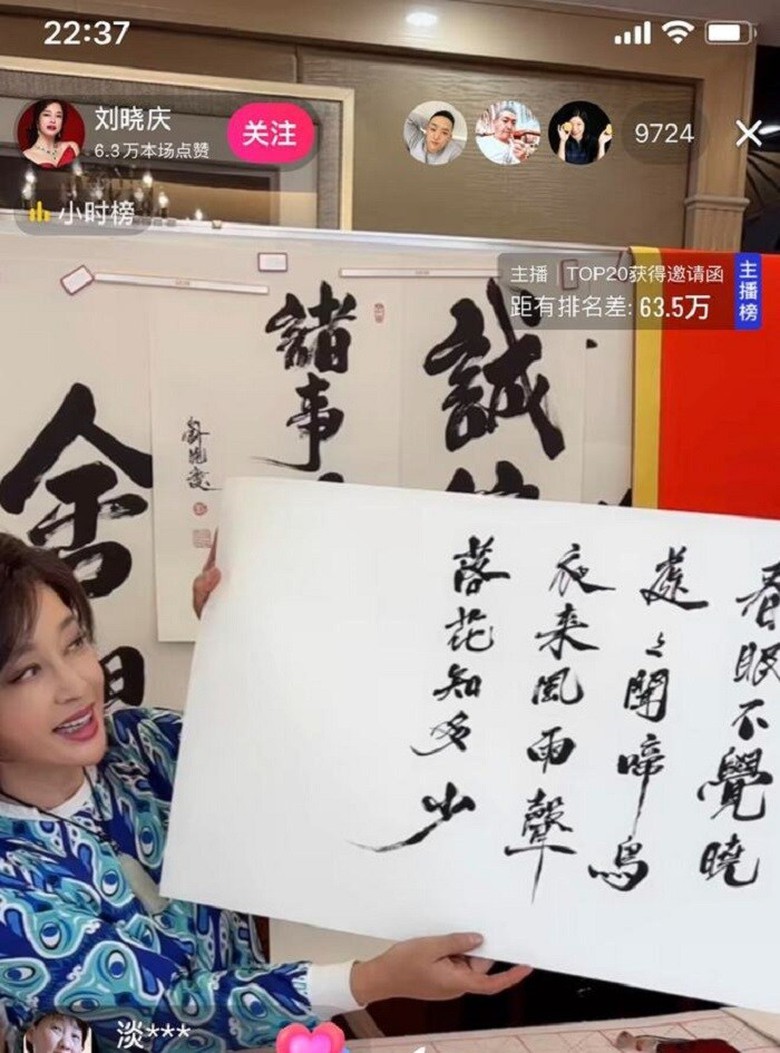 22:37
刘晓庆
6.3万本场点赞
关注
9724
小时榜
主播 | TOP20获得邀请函
距有排名差: 63.5万
主播榜
誠
諸事
劉曉慶
舍
春眠不覺曉
處々聞啼鳥
夜来風雨聲
落花知多少
淡***